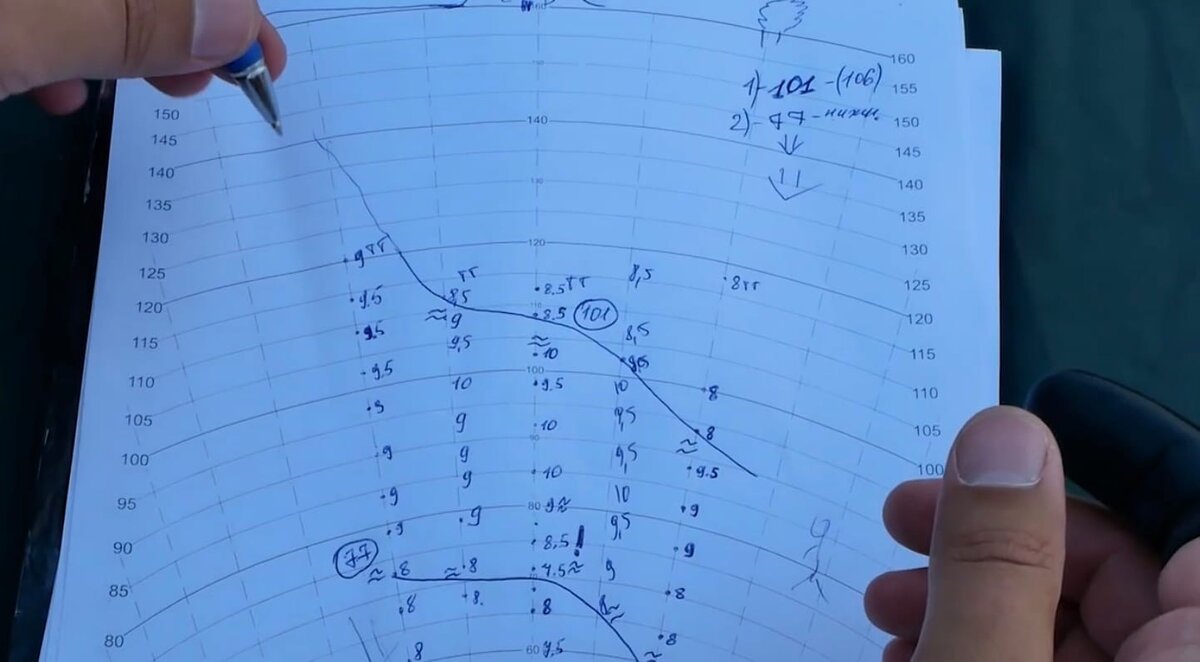 160
160
150 155
1) 101 - (106)
145 140 150
2) - 77 - нижн.
140 145
11
135 140
130 135
125 120 130
9 ТТ 8,5 8 ТТ
120 9.5 ТТ 8.5 ТТ 125
8,5 110 120
115 9.5 ≈ 9 8.5 101 8,5
9,5 ≈ 115
110 9.5 10 9,5
10 100 10 8 110
105 9 9.5
9 10 9,5 8 105
100 9 9 90 9,5 ≈ 100
9 10 9.5
95 9 80 9 ≈ 10 9
9 9 9,5
90 77 8,5 ! 9
≈ 8 ≈ 8 7.5 ≈ 9
85 8 8. 8 8 ≈ 8
80 8 60 9,5 8
≈